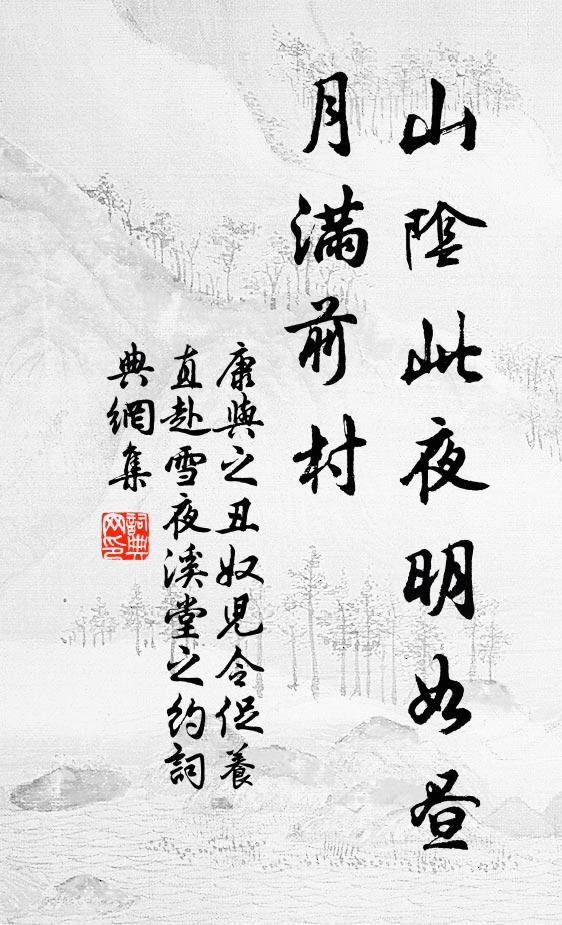 山陰此夜明如晝
月滿前村
康與之丑奴兒令促養
直赴雪夜溪堂之約詞
典網集
詞典
网印